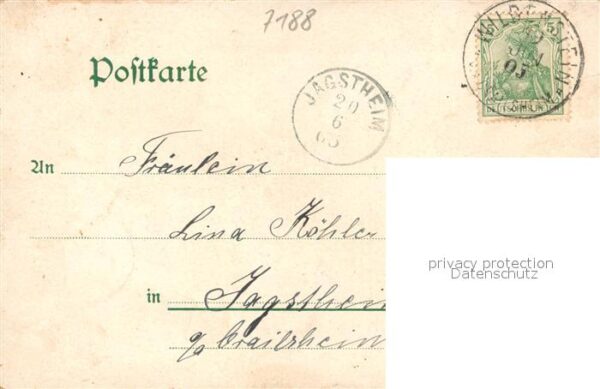 7188
Postkarte
WILDENSTEIN
05
JAGSTHEIM
20
6
05
An Fräulein
Lina Köhler
privacy protection
Datenschutz
in Jagstheim
Crailsheim